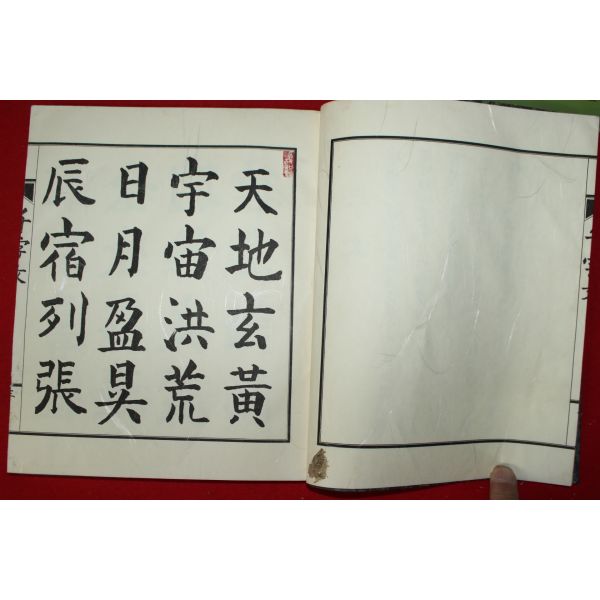 天地玄黃
宇宙洪荒
日月盈昃
辰宿列張
千字文